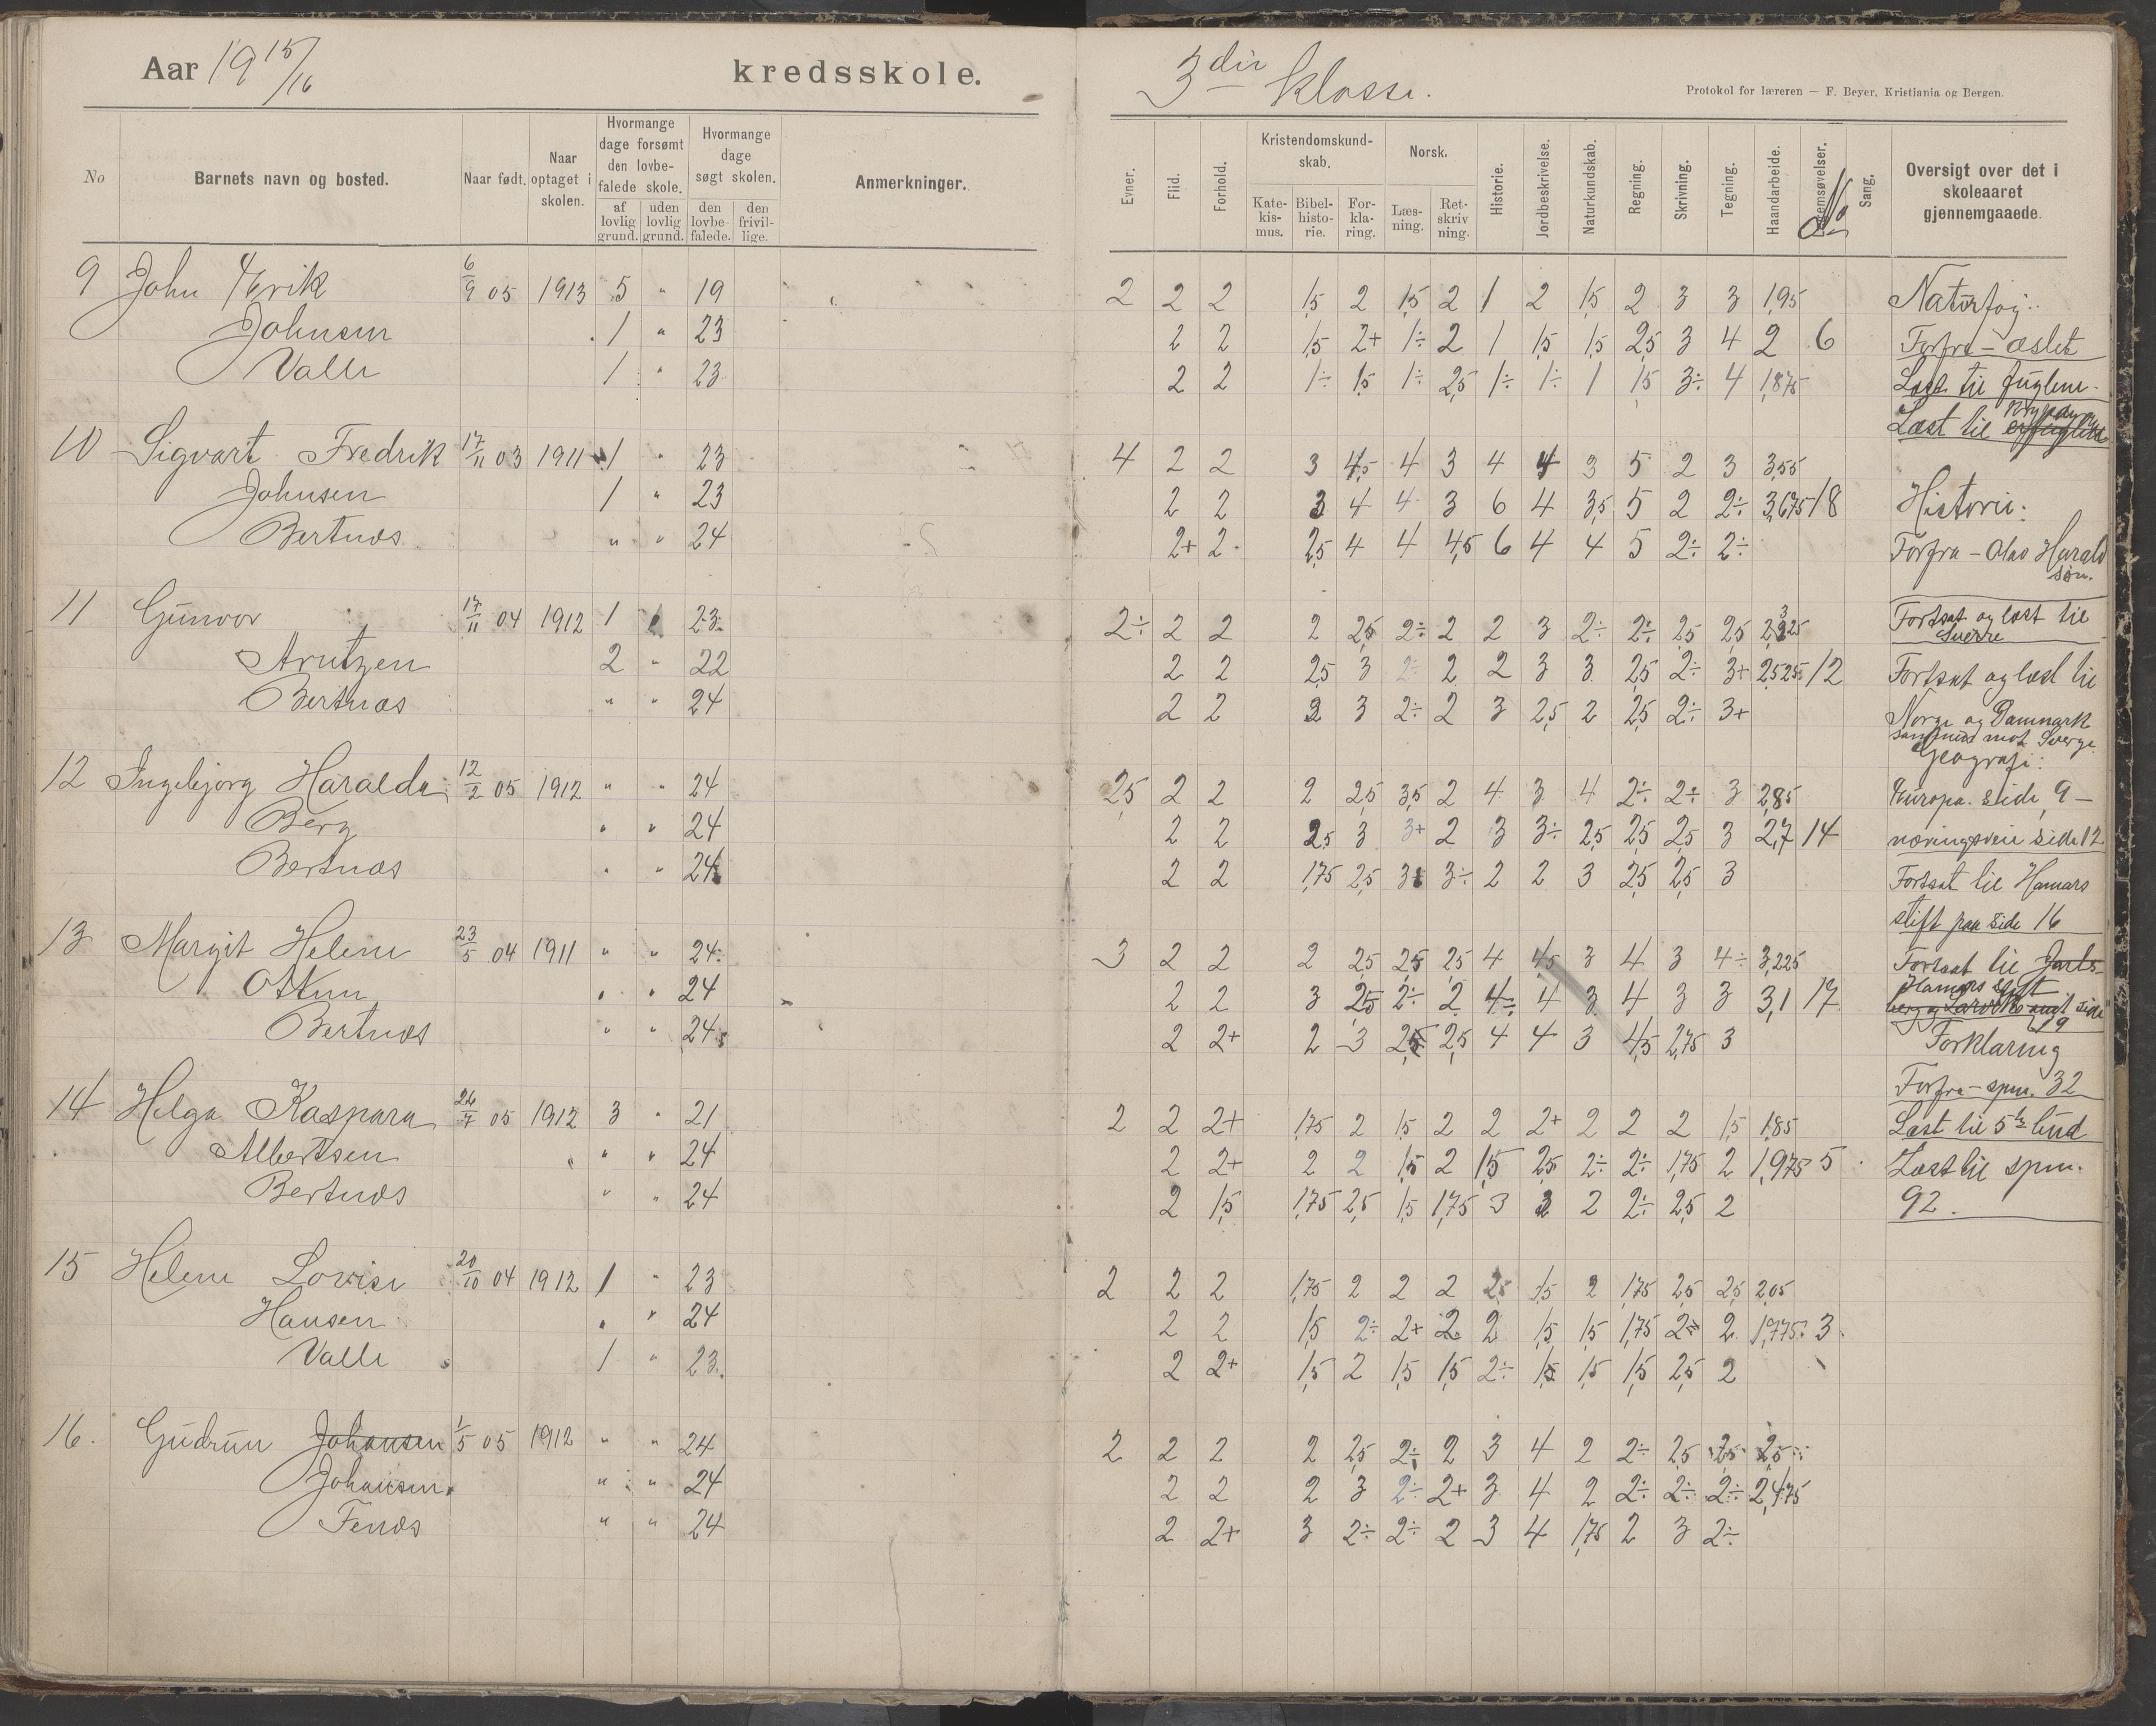 Aar 1915/16 kredsskole.
No Barnets navn og bosted. Naar født. Naar optaget i skolen. Hvormange dage forsømt den lovbefalede skole. af lovlig grund. uden lovlig grund. Hvormange dage søgt skolen. den lovbefalede. den frivillige. Anmerkninger.
9 John Erik 6/9 05 1913 5 " 19
Johnsen 1 " 23
Valle 1 " 23
10 Sigvart Fredrik 17/11 03 1911 1 " 23
Johnsen 1 " 23
Bertnæs " " 24
11 Gunvor 17/11 04 1912 1 23
Arntzen 2 " 22
Bertnæs " " 24
12 Ingebjørg Haralda 12/2 05 1912 " " 24
Berg " " 24
Bertnæs " " 24
13 Margit Helene 23/5 04 1911 " " 24
Ottem " " 24
Bertnæs " " 24
14 Helga Kaspara 26/7 05 1912 3 " 21
Albertsen " " 24
Bertnæs " " 24
15 Helene Lovise 20/10 04 1912 1 " 23
Hansen " " 24
Valle 1 " 23
16. Gudrun Johansen 1/5 05 1912 " " 24
Johansen " " 24
Fenæs " " 24
3die klasse.
Protokol for læreren — F. Beyer, Kristiania og Bergen.
Evner. Flid. Forhold. Kristendomskundskab. Katekismus. Bibelhistorie. Forklaring. Norsk. Læsning. Retskrivning. Historie. Jordbeskrivelse. Naturkundskab. Regning. Skrivning. Tegning. Haandarbeide. No Sang. Oversigt over det i skoleaaret gjennemgaaede.
2 2 2 1,5 2 1,5 2 1 2 1,5 2 3 3 1,95 Naturfag.
2 2 1,5 2+ 1÷ 2 1 1,5 1,5 2,5 3 4 2 6 Forfra – æslet
2 2 1÷ 1,5 1÷ 2,5 1÷ 1÷ 1 1,5 3÷ 4 1,875 Læst til fuglene.
Læst til
4 2 2 3 4,5 4 3 4 4 3 5 2 3 3,55
2 2 3 4 4 3 6 4 3,5 5 2 2÷ 3,675 18 Historie:
2+ 2 2,5 4 4 4,5 6 4 4 5 2÷ 2÷ Forfra – Olav Harald
søn.
2÷ 2 2 2 2,5 2÷ 2 2 3 2÷ 2÷ 2,5 2,5 Fortsat og læst til
Sverre
2 2 2,5 3 2÷ 2 2 3 3 2,5 2÷ 3+ 2,525 12 Fortsat og læst til
2 2 2 3 2÷ 2 3 2,5 2 2,5 2÷ 3+ Norge og Danmark
sammen mot Sverge
Geografi:
2,5 2 2 2 2,5 3,5 2 4 3 4 2÷ 2÷ 3 2,85 Europa. side 9 –
2 2 2,5 3 3+ 2 3 3÷ 2,5 2,5 2,5 3 2,7 14 næringsveie side 12
2 2 1,75 2,5 3 3÷ 2 2 3 2,5 2,5 3 Fortsat til Hamars
stift paa side 16
3 2 2 2 2,5 2,5 2,5 4 4,5 3 4 3 4÷ 3,225 Fortsat til Jarls-
Hamars stift
2 2 3 2,5 2÷ 2 4÷ 4 3 4 3 3 3,1 17 berg og Larviks amt side
19
2 2+ 2 3 2,5 2,5 4 4 3 4,5 2,75 3 Forklaring
Forfra – spm. 32
2 2 2+ 1,75 2 1,5 2 2 2+ 2 2 2 1,5 1,85 Læst til 5te bud
2 2+ 2 2 1,5 2 1,5 2,5 2÷ 2÷ 1,75 2 1,975 5 Læst til spm.
2 1,5 1,75 2,5 1,5 1,75 3 3 2 2÷ 2,5 2 92.
2 2 2 1,75 2 2 2 2,5 1,5 2 1,75 2,5 2,5 2,05
2 2 1,5 2÷ 2+ 2 2 1,5 1,5 1,75 2÷ 2 1,775 3
2 2+ 1,5 2 1,5 1,5 2÷ 1,5 1,5 1,5 2,5 2
2 2 2 2 2,5 2÷ 2 3 4 2 2÷ 2,5 2,5 2,5
2 2 2 3 2÷ 2+ 3 4 2 2÷ 2÷ 2÷ 2,475
2 2+ 3 2÷ 2÷ 2 3 4 1,75 2 3 2÷